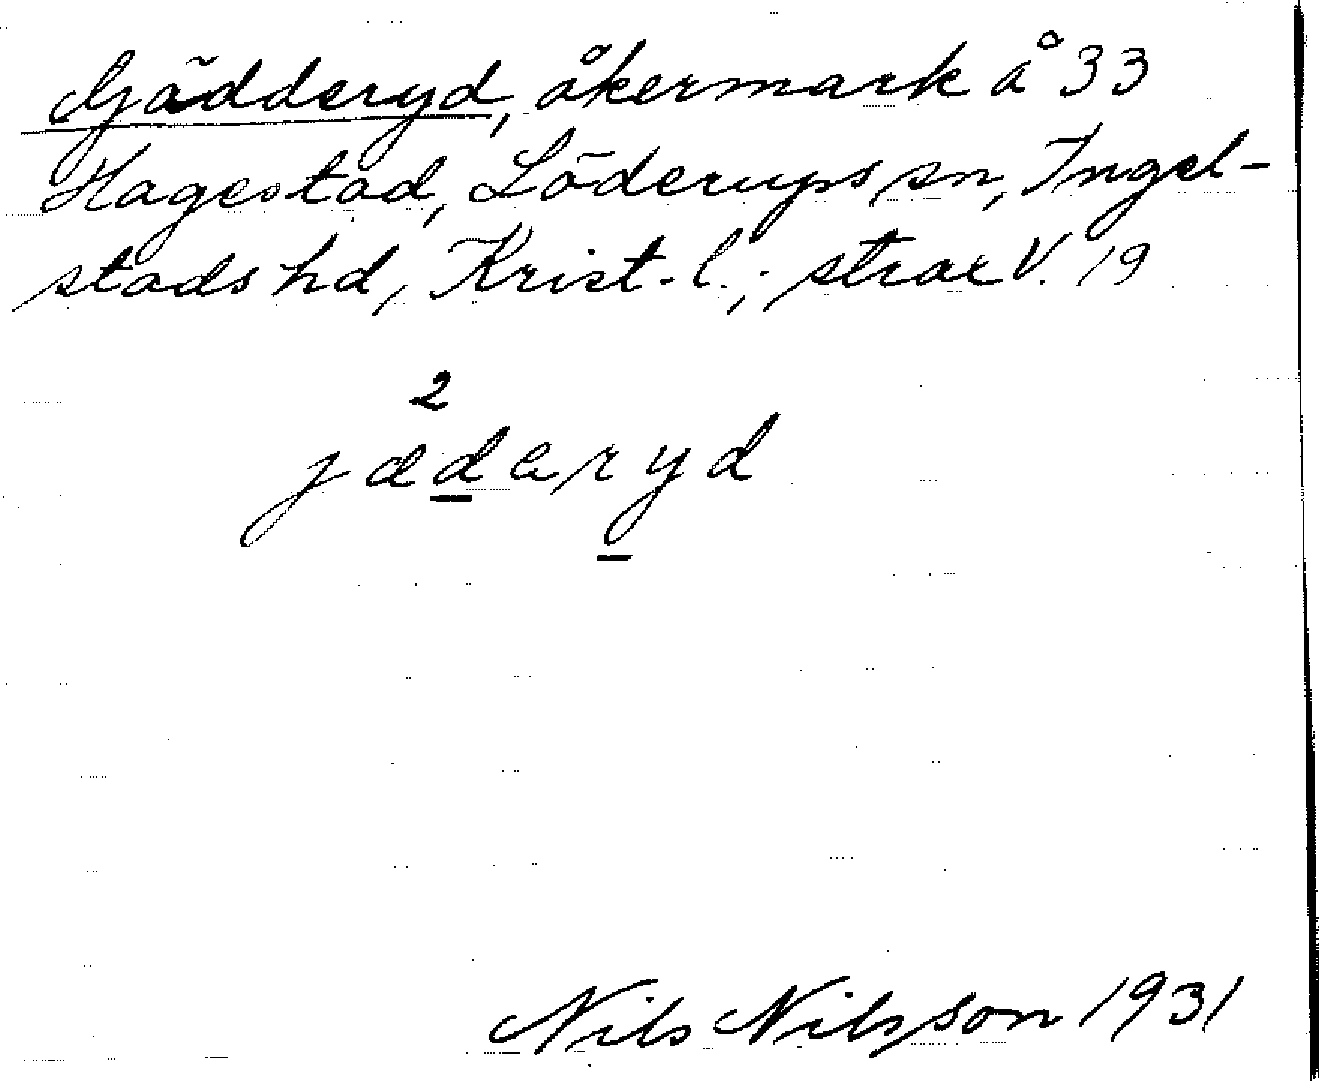 Gjädderyd, åkermark å 33
Hagestad, Löderups sn, Ingel-
stads hd, Krist. l.; strax V. 19
2
jædaryd
Nils Nilsson 1931